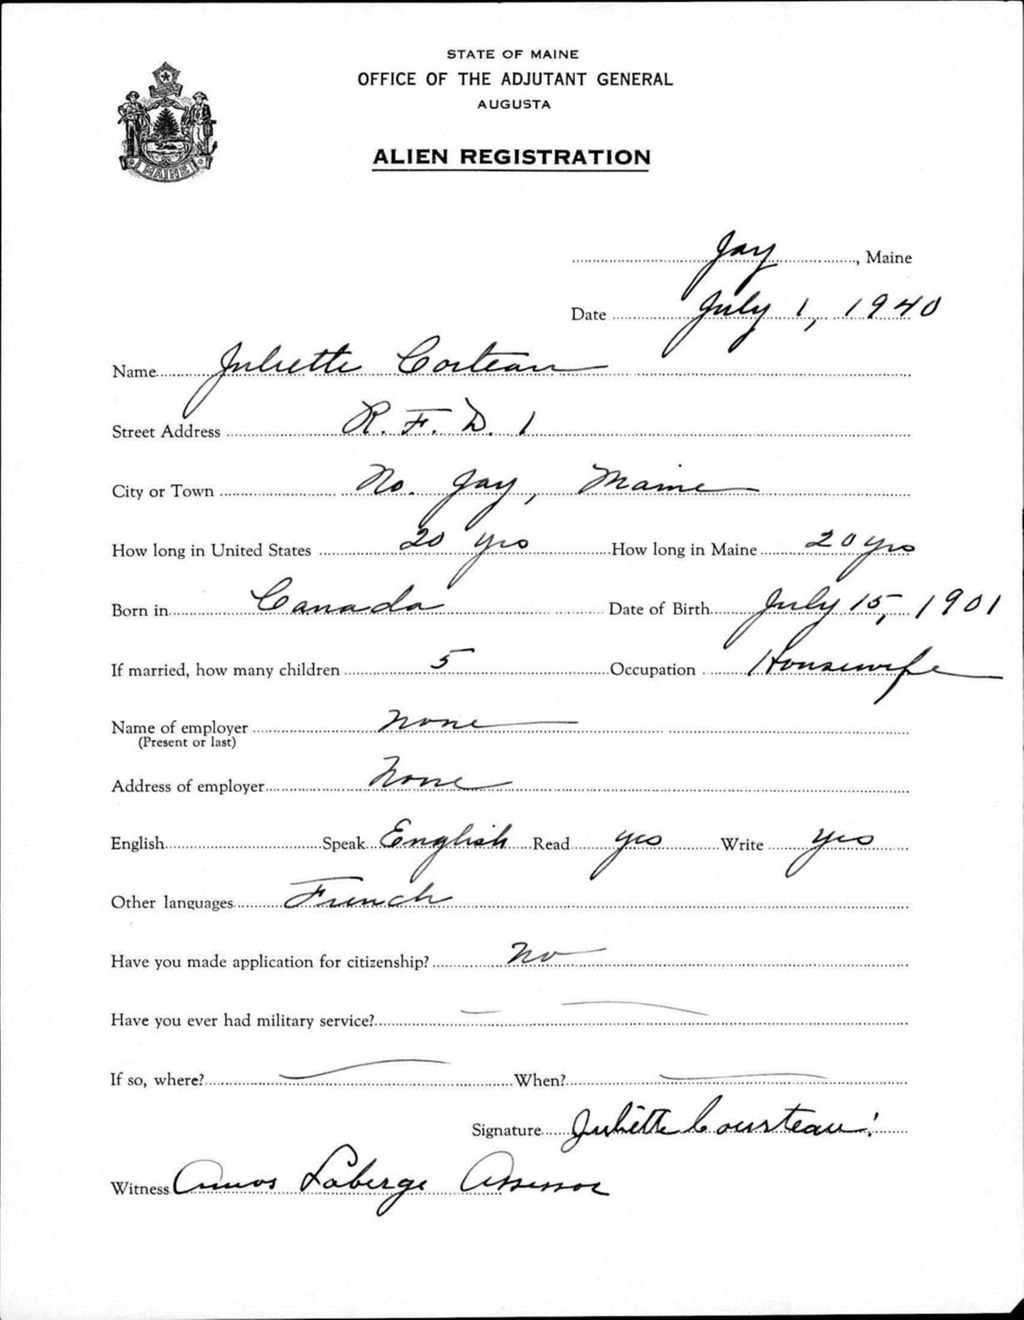 STATE OF MAINE
OFFICE OF THE ADJUTANT GENERAL
AUGUSTA
ALIEN REGISTRATION
MAINE
Jay, Maine
Date July 1, 1940
Name Juliette Costeau
Street Address R. F. D. 1
City or Town No. Jay, Maine
How long in United States 20 yrs How long in Maine 20 yrs
Born in Canada Date of Birth July 15, 1901
If married, how many children 5 Occupation Housewife
Name of employer None
(Present or last)
Address of employer None
English Speak English Read yes Write yes
Other languages French
Have you made application for citizenship? No
Have you ever had military service? — —
If so, where? — When? —
Signature Juliette Cousteau
Witness Amos Laberge Assessor